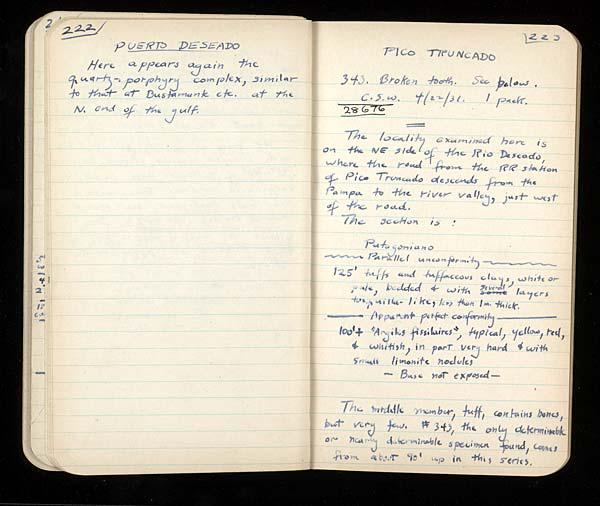 222
PUERTO DESEADO
Here appears again the
quartz-porphyry complex, similar
to that at Bustamante etc. at the
N. end of the gulf.
223
PICO TRUNCADO
343. Broken tooth. See below.
C.S.W. 4/22/31. 1 pack.
28676
The locality examined here is
on the NE side of the Rio Deseado,
where the road from the RR station
of Pico Truncado descends from the
Pampa to the river valley, just west
of the road.
The section is :
Patagoniano
Parallel unconformity
125' tuffs and tuffaceous clays, white or
pale, bedded & with several layers
tosquilla-like, less than 1m. thick.
Apparent perfect conformity
100'+ "Argiles fissilaires", typical, yellow, red,
& whitish, in part very hard & with
small limonite nodules
— Base not exposed —
The middle member, tuff, contains bones,
but very few. #343, the only determinable
or nearly determinable specimen found, comes
from about 90' up in this series.